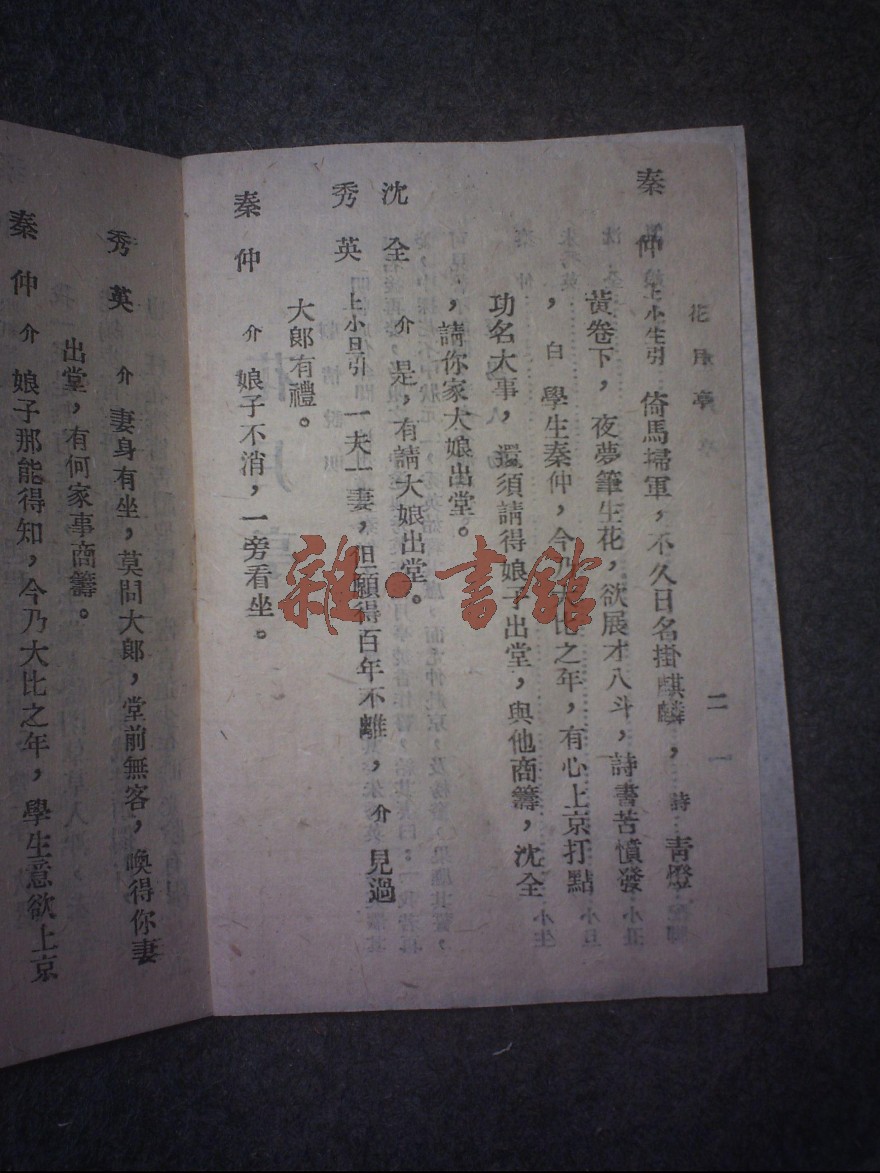 花月亭
二
秦仲 上小生引 倚馬掃軍，不久日名掛麒麟，詩 青燈
黃卷下，夜夢筆生花，欲展才八斗，詩書苦憤發
，白 學生秦仲，今乃大比之年，有心上京打點
功名大事，還須請得娘子出堂，與他商籌，沈全
，請你家大娘出堂。
沈全 介 是，有請大娘出堂。
秀英 上小旦引 一夫一妻，但願得百年不離，介 見過
大郎有禮。
秦仲 介 娘子不消，一旁看坐。
秀英 介 妻身有坐，莫問大郎，堂前無客，喚得你妻
出堂，有何家事商籌。
秦仲 介 娘子那能得知，今乃大比之年，學生意欲上京
雜·書館